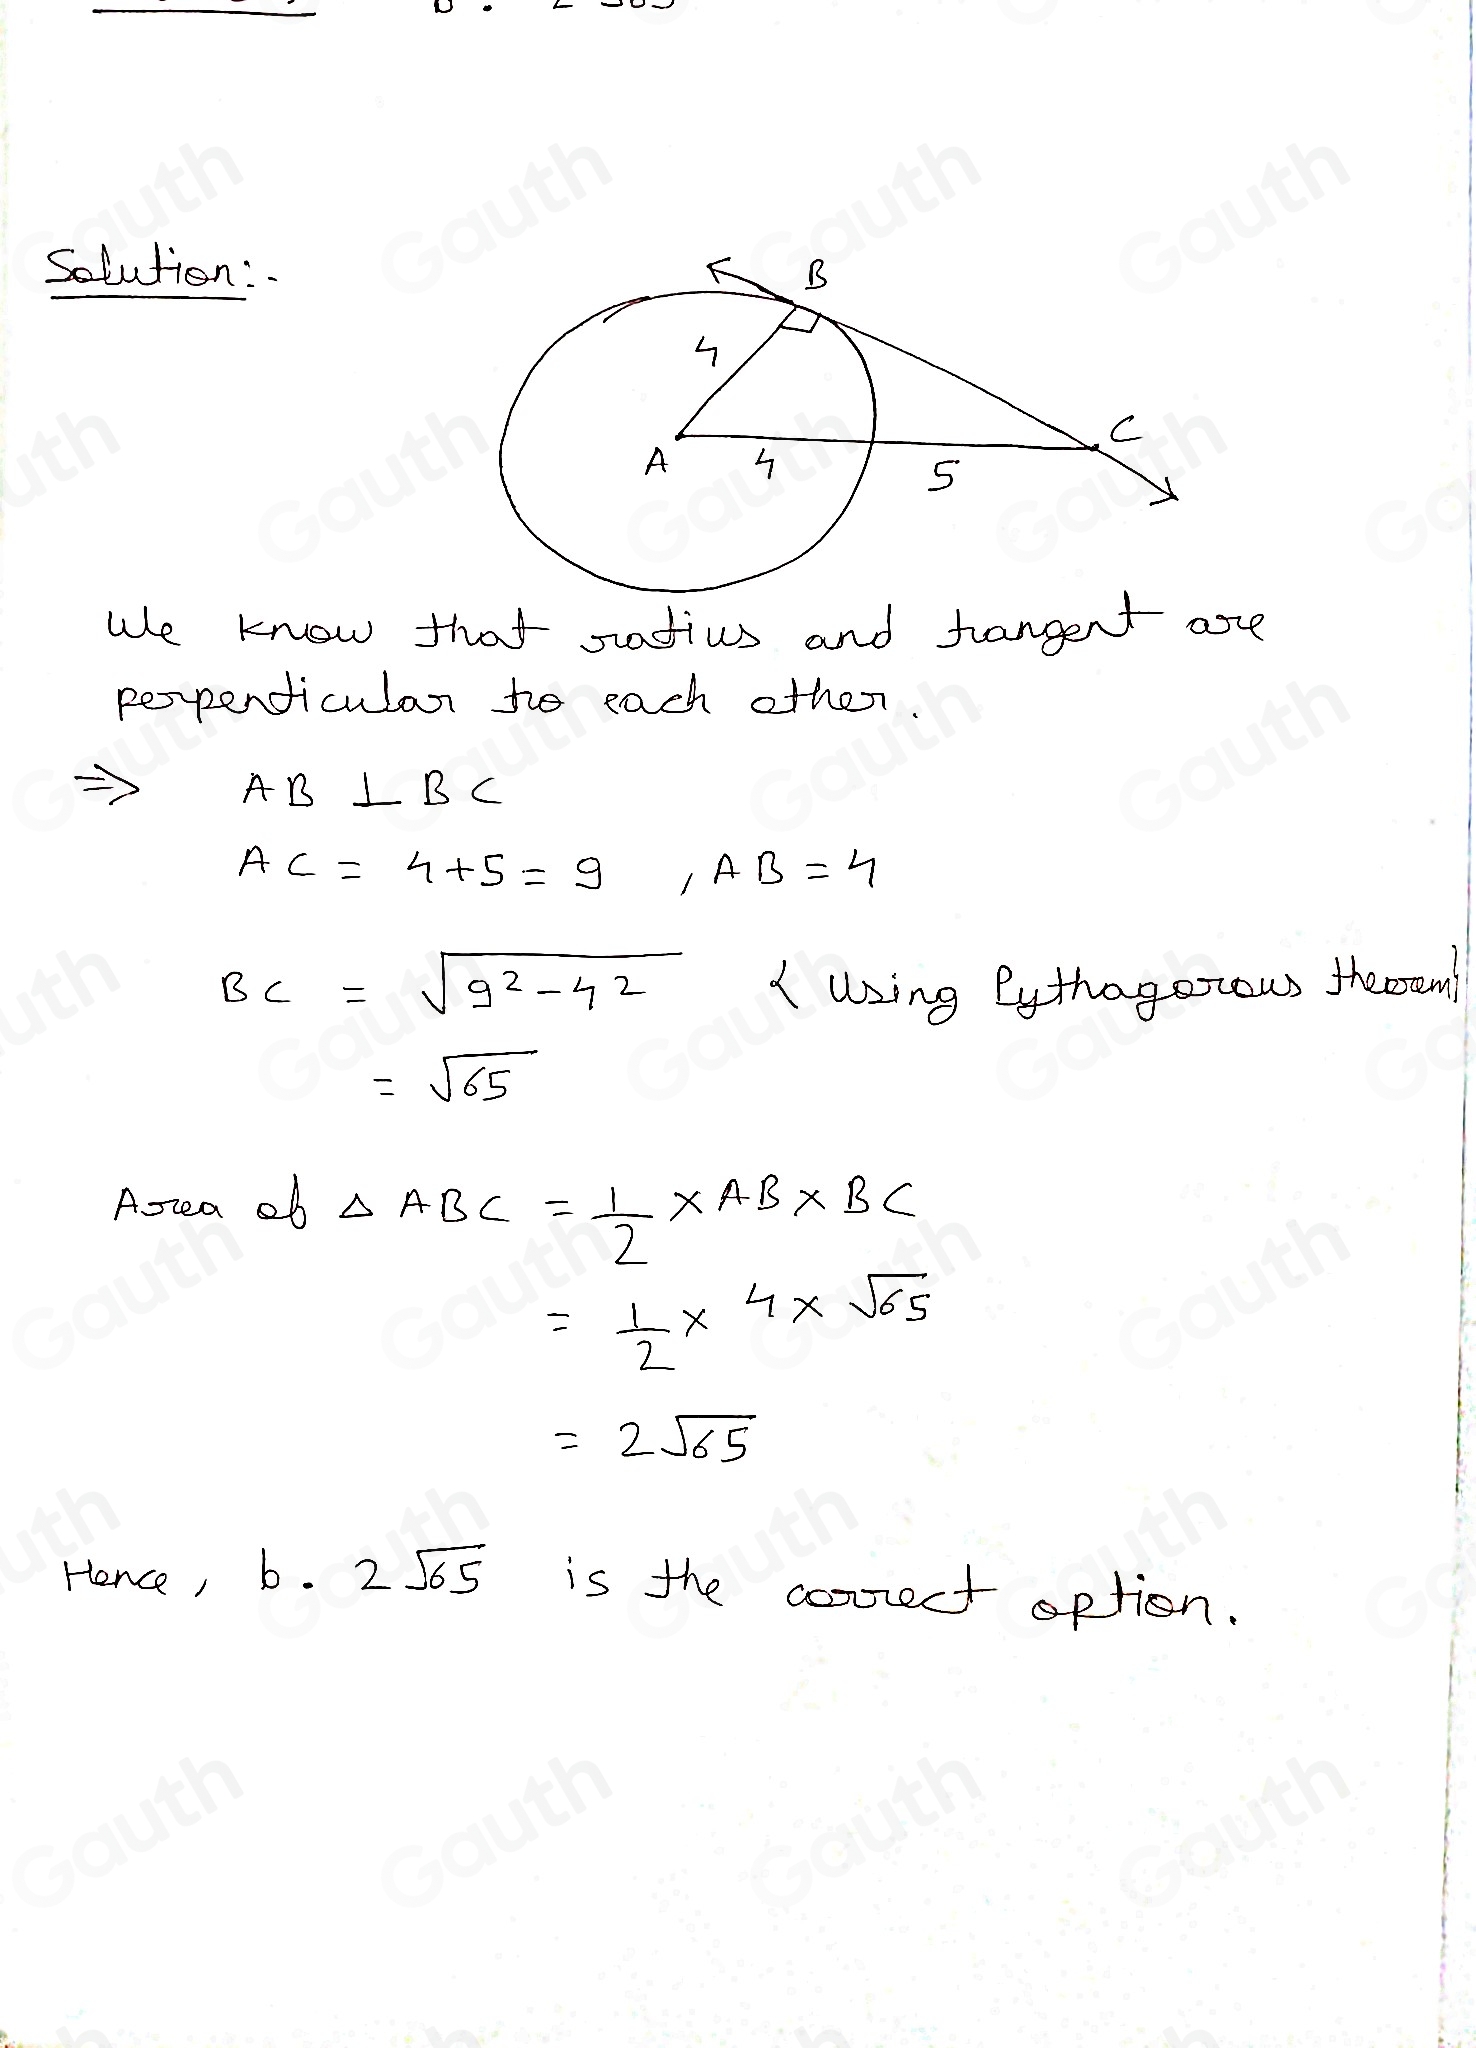 Solution:-
B
4
A
4
5
C
We know that radius and tangent are
perpendicular to each other.
⇒ AB ⊥ BC
AC = 4+5 = 9 , AB = 4
BC = √(9²-4²) { Using Pythagorous theorem}
= √65
Area of △ ABC = 1/2 × AB × BC
= 1/2 × 4 × √65
= 2√65
Hence, b. 2√65 is the correct option.
Gauth